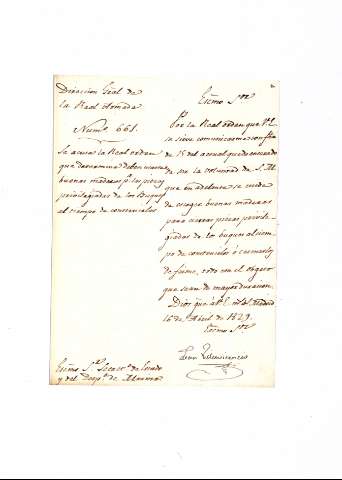 Direccion Gral de
la Real Armada.
Num.º 661.
Se acusa la Real orden
que determina deben usarse
buenas maderas p.ª las piezas
privilegiadas de los Buques
al tiempo de construirlos
Excmo. S.or
Por la Real orden que V.E.
se sirve comunicarme con fha
de 15 del actual quedo enterado
de ser la voluntad de S.M.
que en adelante se cuide
de escoger buenas maderas
para varias piezas privile-
giadas de los buques al tiem-
po de construirlos ó carenarlos
de firme, todo con el objeto
que sean de mayor duracion.
Dios gue. a V.E. m.s a.s Madrid
16 de Abril de 1829.
Excmo. S.or
Juan Villavicencio
Excmo. S.r Secret.º de Estado
y del Desp.º de Marina